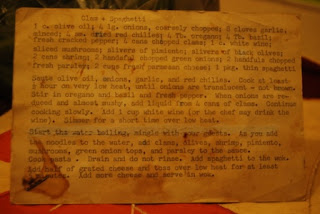 Clam & Spaghetti
1 c. olive oil; 2 lg. onions, coarsely chopped; 2 cloves garlic,
minced; 1 sm. dried red chilies; 1 Tb. oregano; 1 Tb. basil;
fresh cracked pepper; 2 cans chopped clams; 1 c. white wine;
sliced mushrooms; slivers of pimiento; slivers black olives;
2 cans shrimp; 2 handfuls chopped green onions; 2 handfuls chopped
fresh parsley; cups fresh parmesan cheese; 1 pkg. thin spaghetti
Saute olive oil, onions, garlic, and red chilies. Cook at least
hour on very low heat, until onions are translucent - not brown
Stir in oregano and basil and fresh pepper. When onions are re-
duced and almost mushy, add liquid from 2 cans of clams. Continue
cooking slowly. Add 1 cup white wine (or the cat may drink the
wine). Simmer for a short time over low heat.
Start the water boiling, mingle with your guests. As you add
the noodles to the water, add clams, olives, shrimp, pimiento,
mushrooms, green onion tops, and parsley to the sauce.
Cook pasta. Drain and do not rinse. Add spaghetti to the wok.
Add half of grated cheese and toss over low heat for at least
minute. Add more cheese and serve in wok.